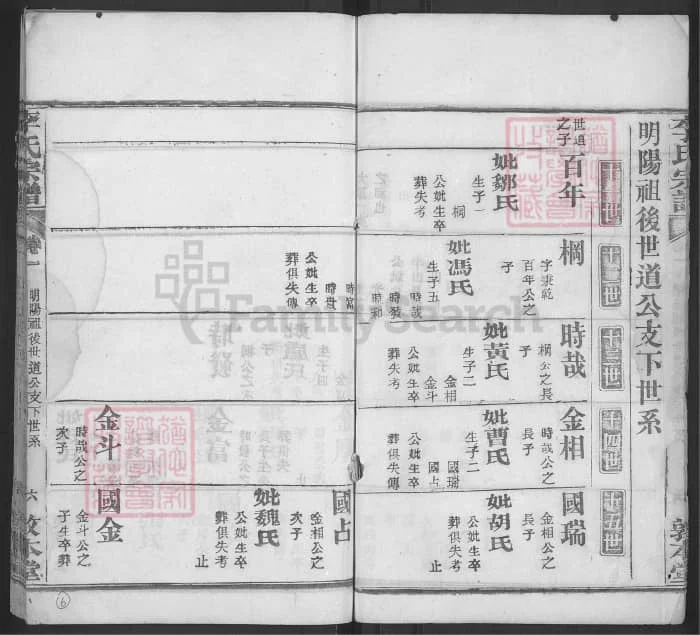 李氏宗譜
敦本堂
明陽祖後世道公支下世系
十一世
十二世
十三世
十四世
十五世
百年
世道
之子
妣鄒氏
生子一
棡
公妣生卒
葬失考
棡
字秉乾
百年公之
子
妣馮氏
生子五
時哉
時發
時和
時富
時貴
公妣生卒
葬俱失傳
時哉
棡公之長
子
妣黃氏
生子二
金相
金斗
公妣生卒
葬失考
金相
時哉公之
長子
妣曹氏
生子二
國瑞
國占
公妣生卒
葬俱失傳
國瑞
金相公之
長子
妣胡氏
公妣生卒
葬俱失考
止
國占
金相公之
次子
妣魏氏
公妣生卒
葬俱失考
止
金斗
時哉公之
次子
國金
金斗公之
子生卒葬
李氏宗譜
卷一
明陽祖後世道公支下世系
六
敦本堂
6
FamilySearch